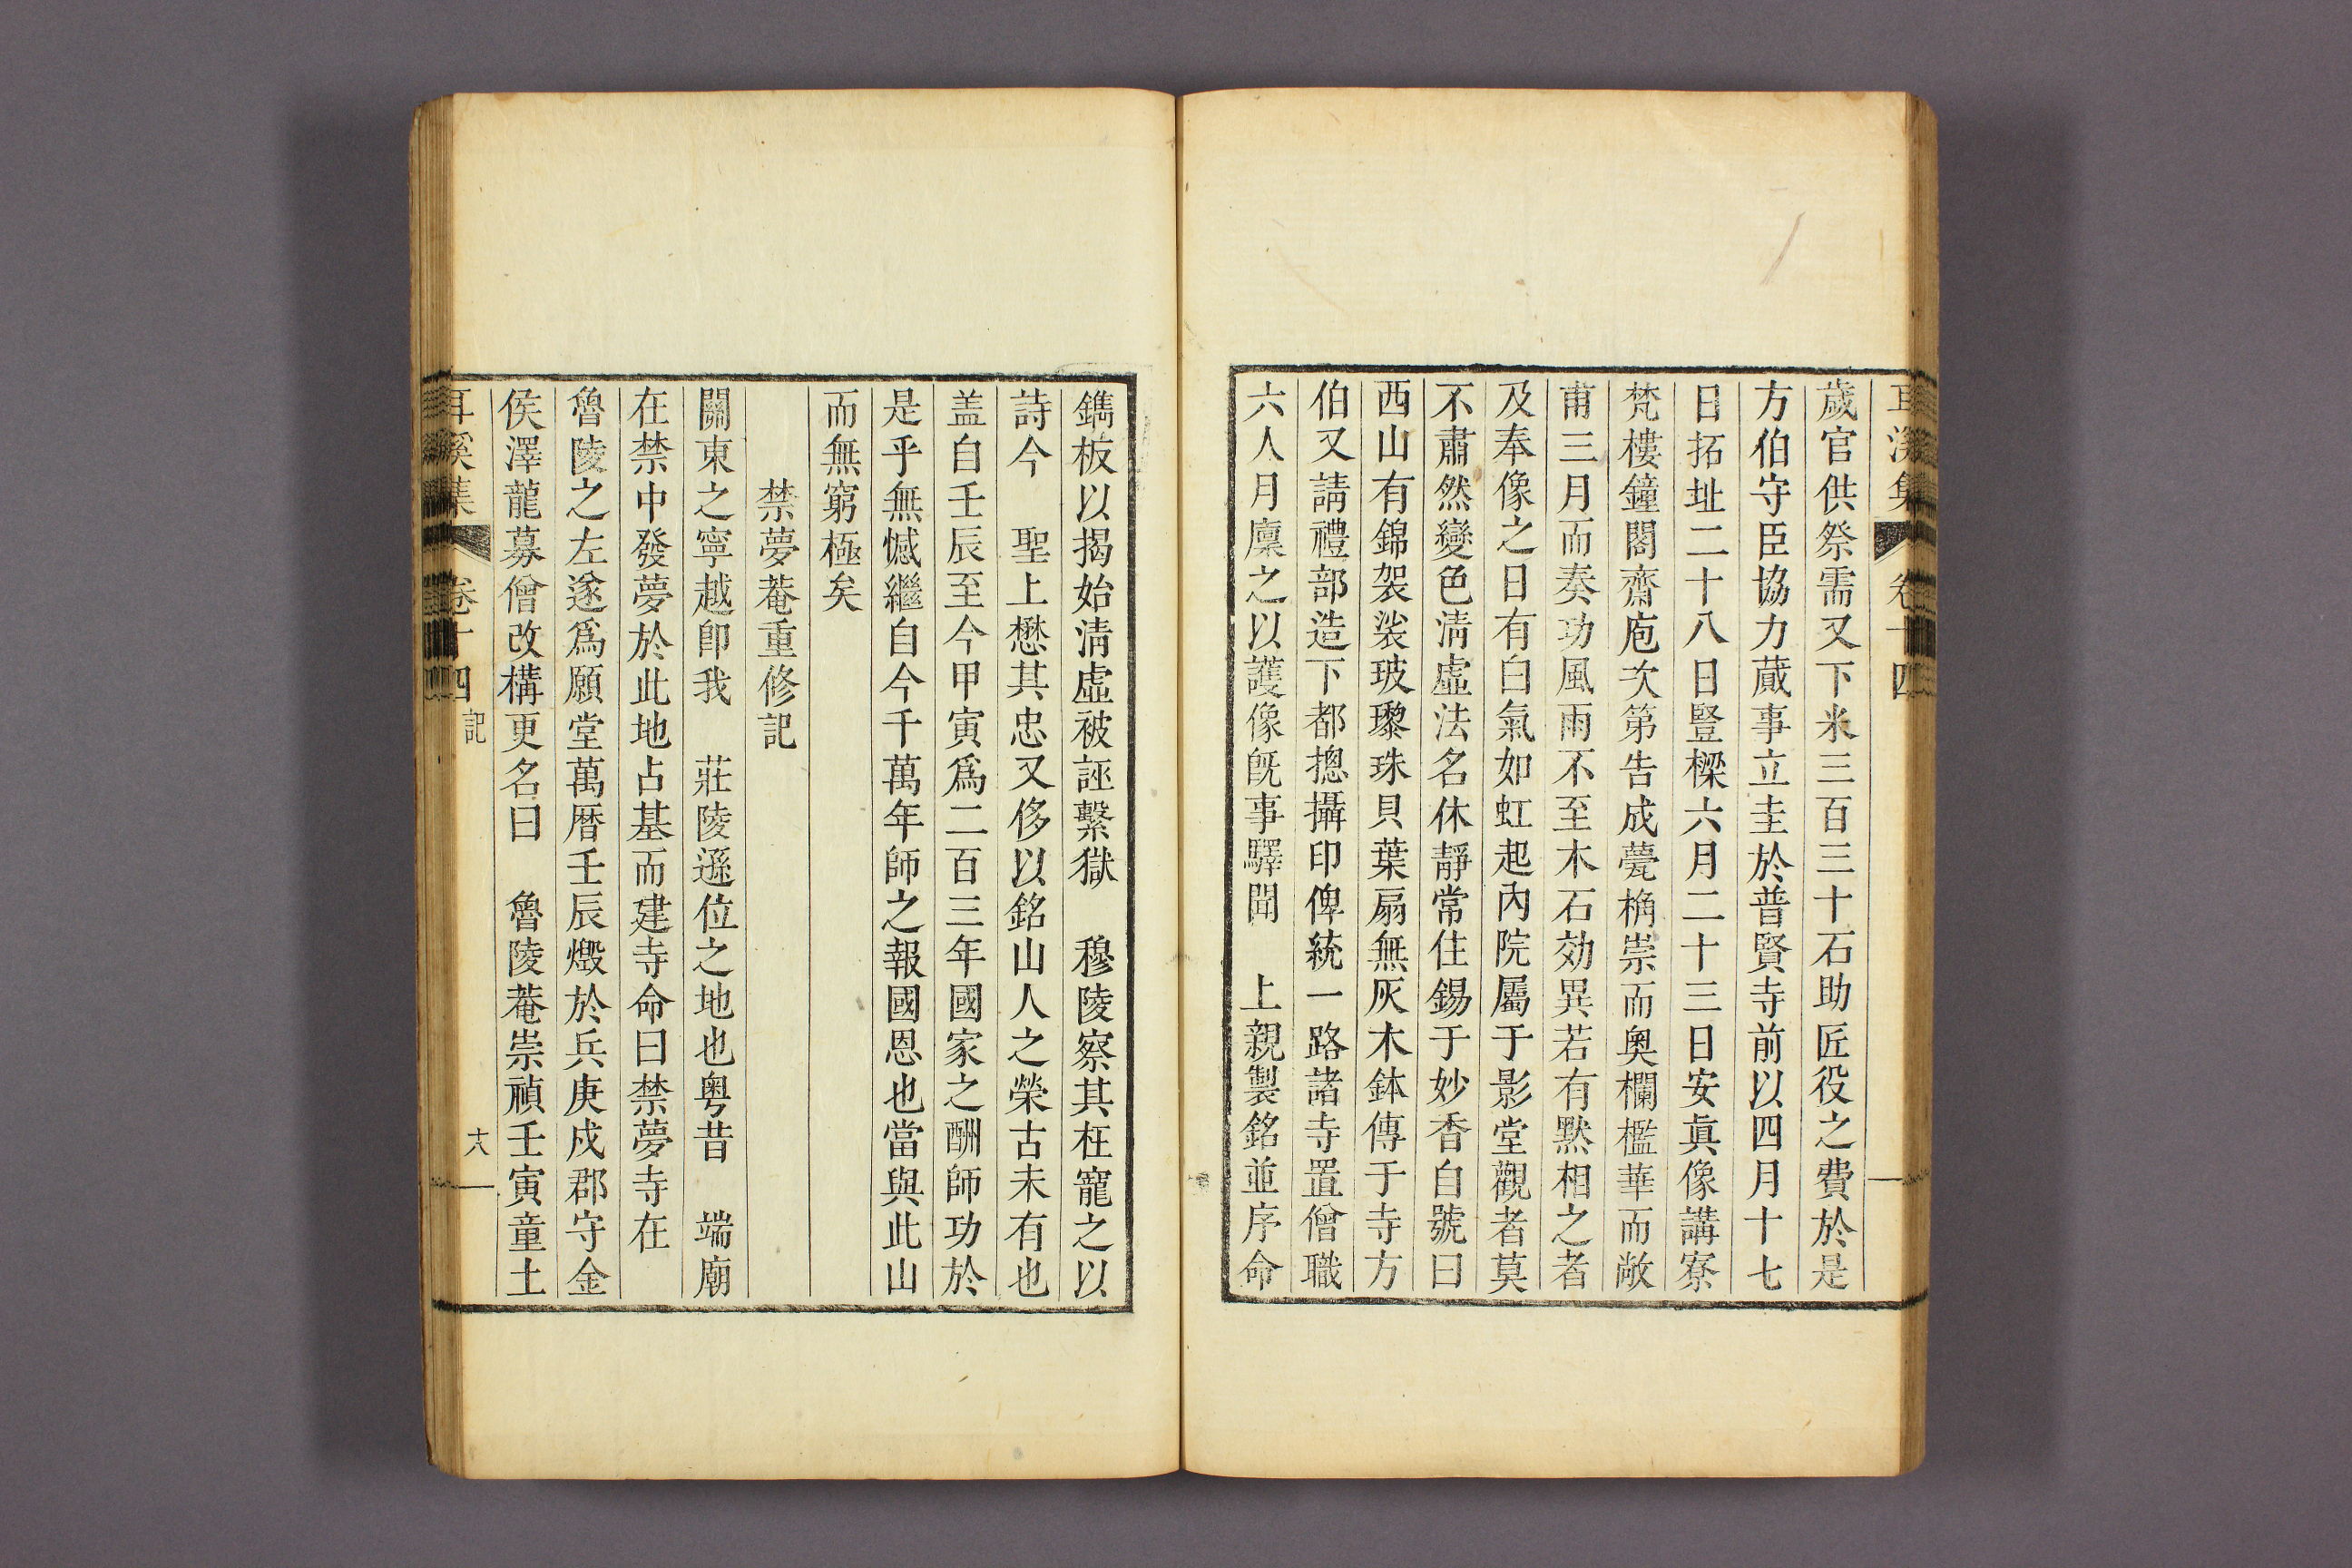 耳溪集 卷十四
歲官供祭需又下米三百三十石助匠役之費於是
方伯守臣協力蕆事立圭於普賢寺前以四月十七
日拓址二十八日豎樑六月二十三日安眞像講寮
梵樓鐘閣齋庖次第告成甍桷崇而奧欄檻華而敞
甫三月而奏功風雨不至木石効異若有默相之者
及奉像之日有白氣如虹起內院屬于影堂觀者莫
不肅然變色淸虛法名休靜常住錫于妙香自號曰
西山有錦袈裟玻瓈珠貝葉扇無灰木鉢傳于寺方
伯又請禮部造下都摠攝印俾統一路諸寺置僧職
六人月廩之以護像旣事驛聞　上親製銘並序命
鐫板以揭始淸虛被誣繫獄　穆陵察其枉寵之以
詩今　聖上懋其忠又侈以銘山人之榮古未有也
盖自壬辰至今甲寅爲二百三年國家之酬師功於
是乎無憾繼自今千萬年師之報國恩也當與此山
而無窮極矣
禁夢菴重修記
關東之寧越卽我　莊陵遜位之地也粤昔　端廟
在禁中發夢於此地占基而建寺命曰禁夢寺在
魯陵之左遂爲願堂萬曆壬辰燬於兵庚戍郡守金
侯澤龍募僧改構更名曰　魯陵菴崇禎壬寅童土
耳溪集 卷十四 記 十八